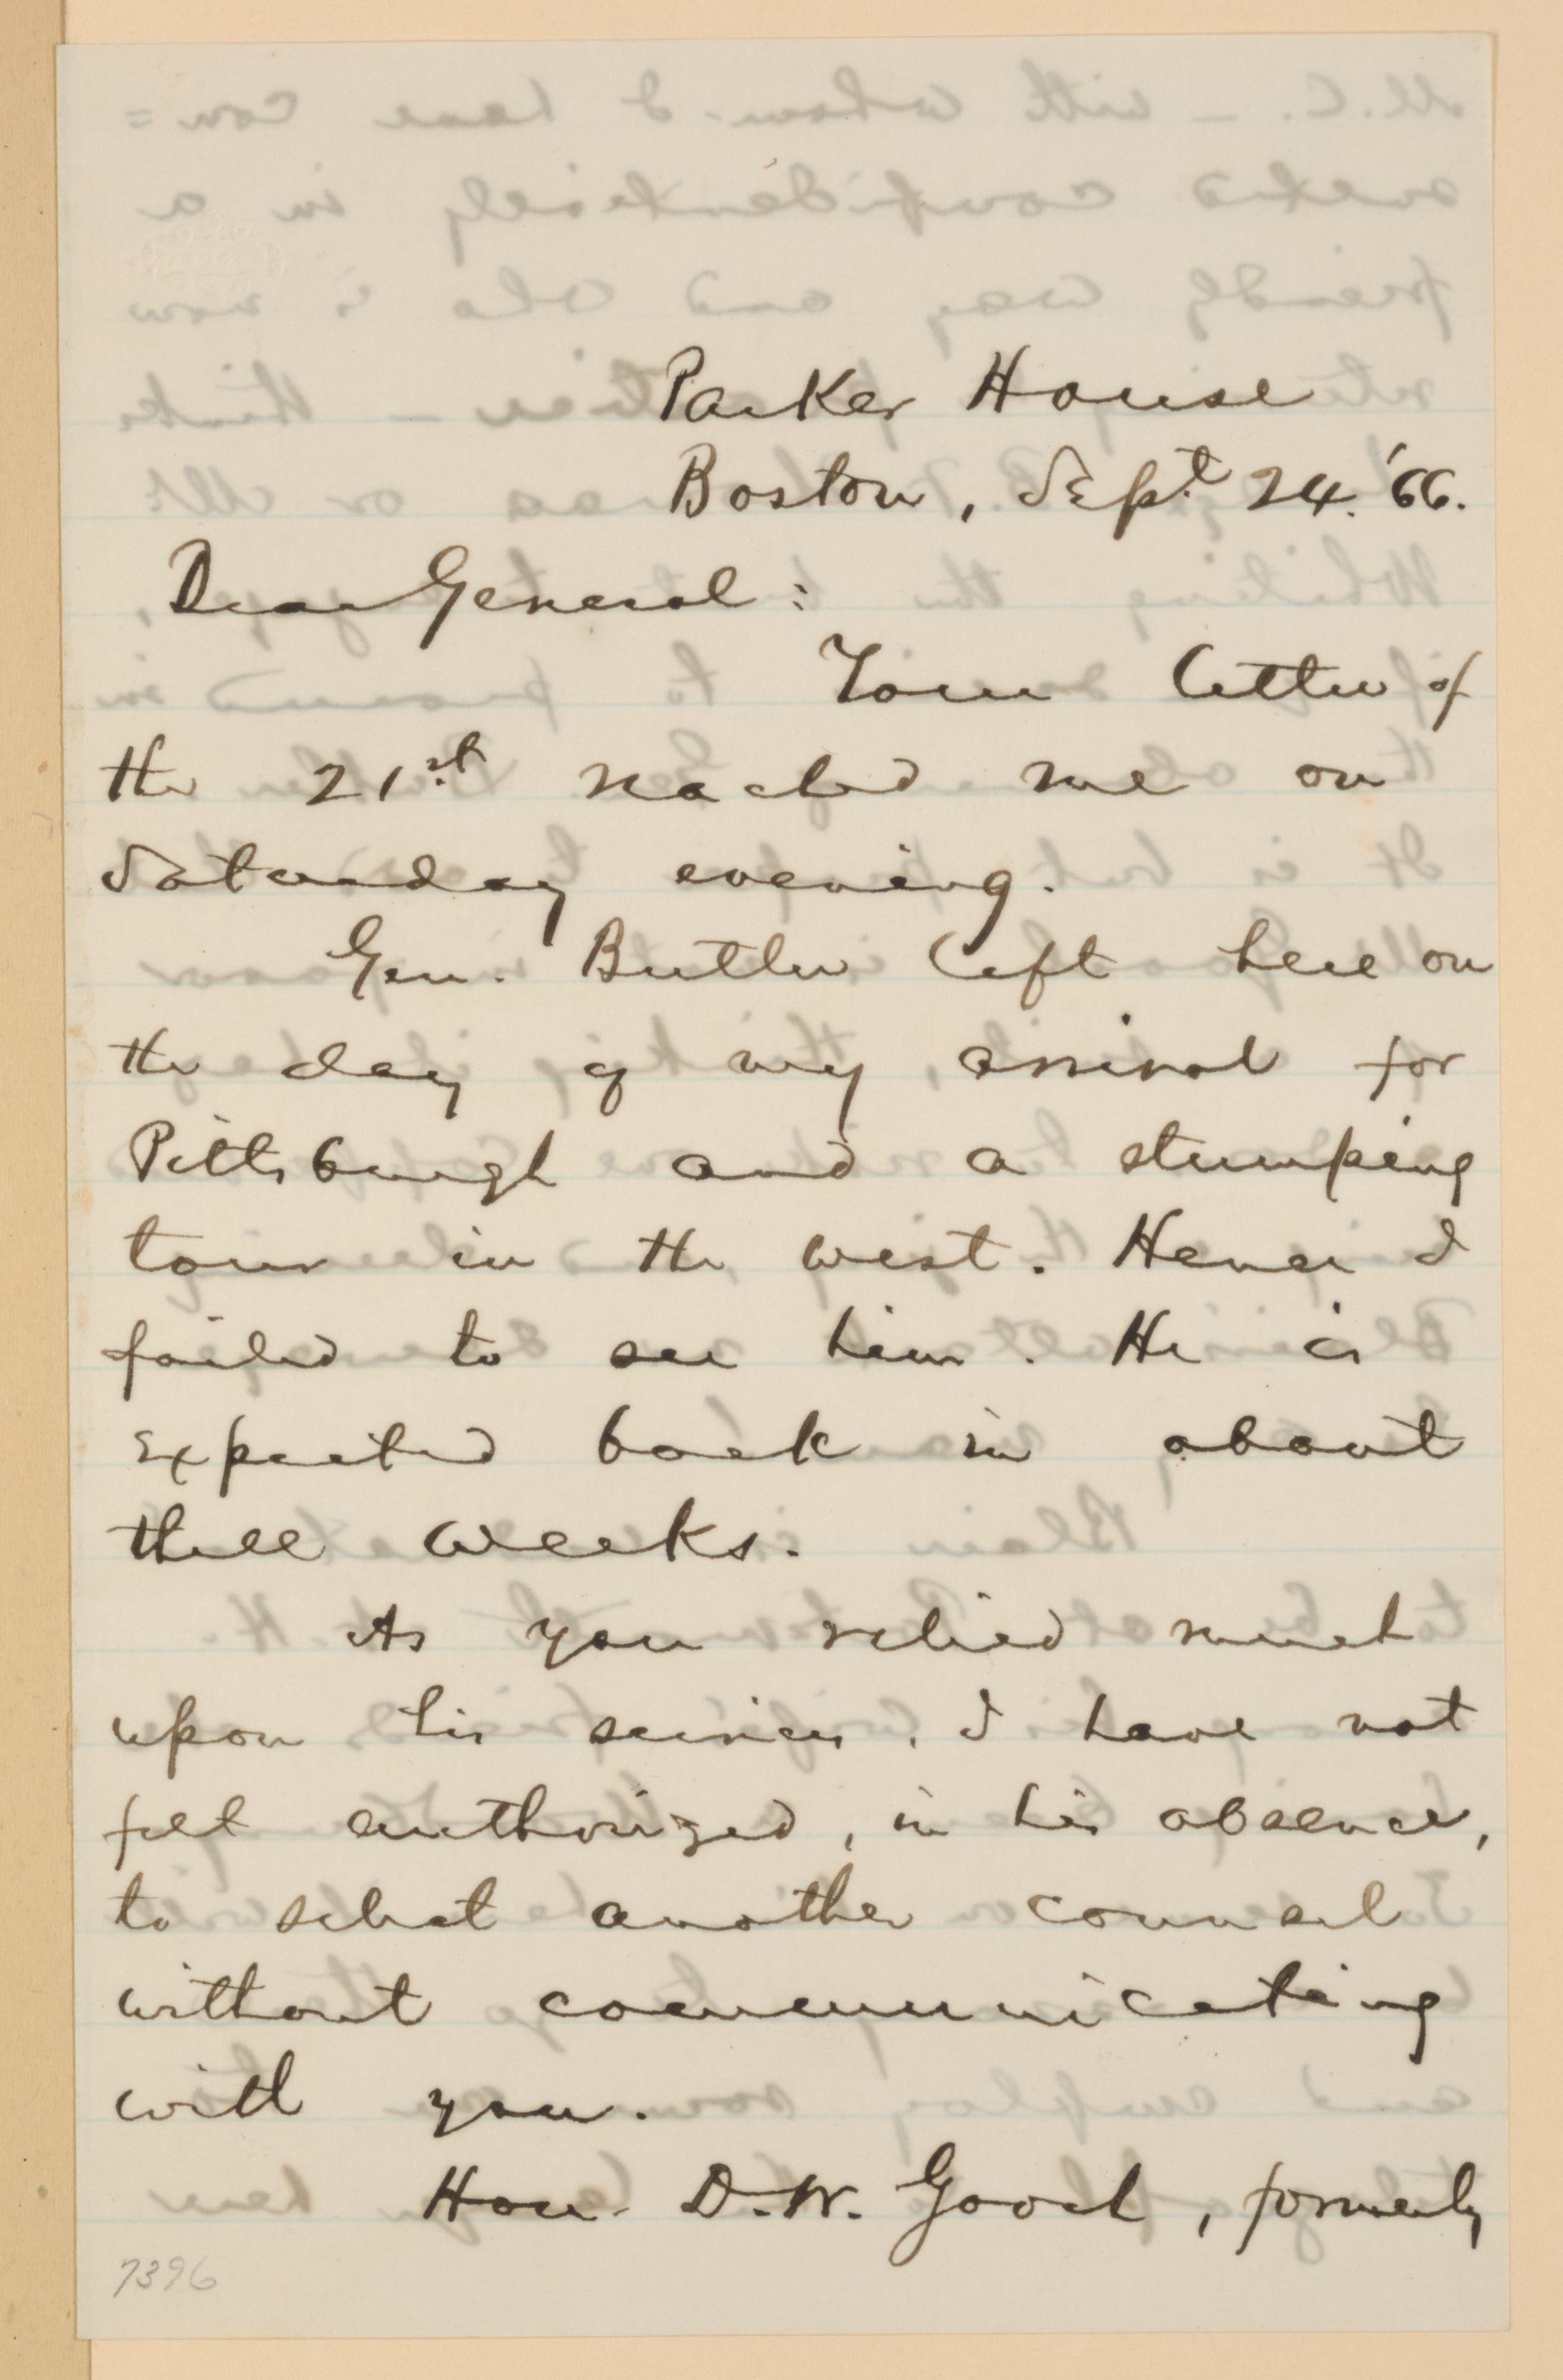 Parker House
Boston, Sept 24. '66.
Dear General:
Your letter of
the 21st reached me on
Saturday evening.
Gen. Butler left here on
the day of my arrival for
Pittsburgh and a stumping
tour in the west. Hence I
failed to see him. He is
expected back in about
three weeks.
As you relied much
upon his services, I have not
felt authorized, in his absence,
to select another counsel
without communicating
with you.
Hon. D. W. Gooch, formerly
7396